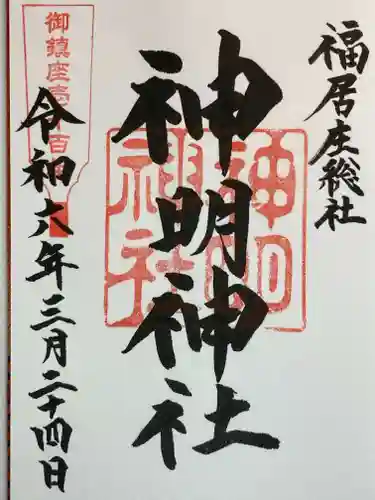 福居庄総社
神明神社
神明神社
令和六年三月二十四日
御鎮座壱千百